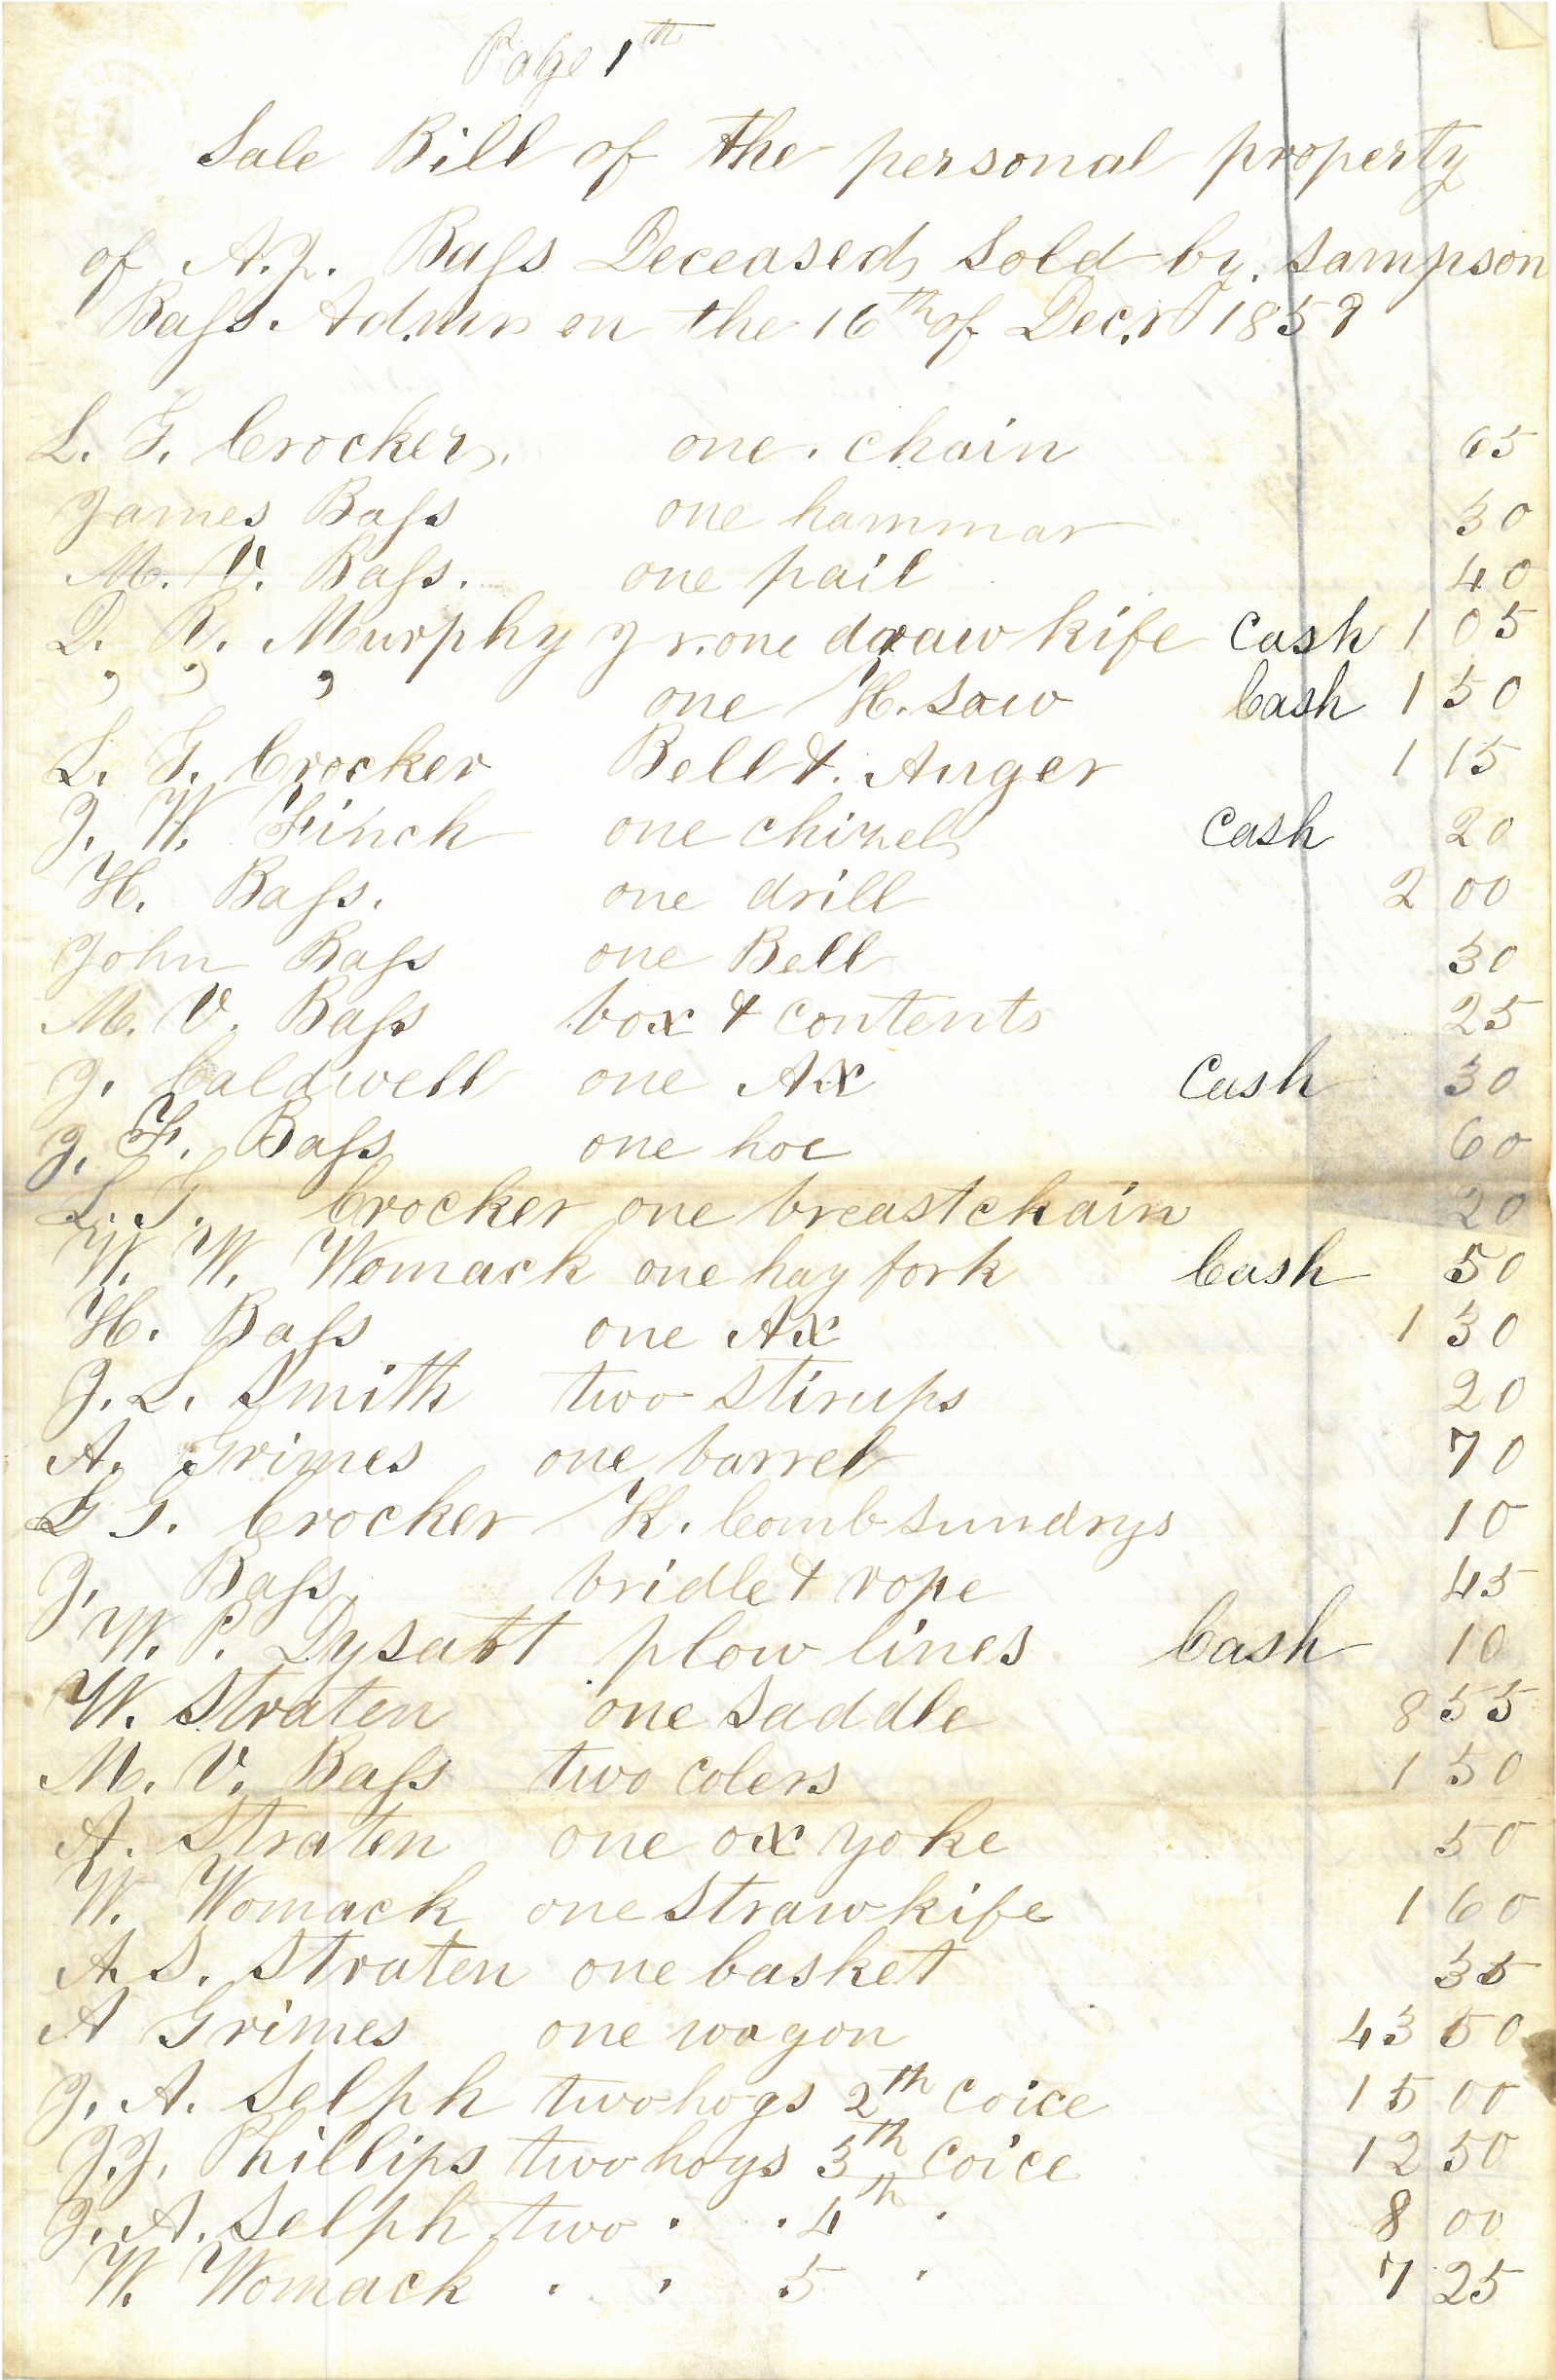 Page 1th
Sale Bill of the personal property
of A. J. Bass Deceased, Sold by Sampson
Bass Admr on the 16th of Dec. 185
L. G. Crocker. one chain 65
James Bass one hammar 30
M. V. Bass. one pail 40
Murphy Jr. one draaw kife Cash 1 05
" " " one H. saw Cash 1 50
L. G. Crocker Bell & Auger 1 15
J. W. Finch one chizel Cash 20
H. Bass. one drill 2 00
John Bass one Bell 30
M. V. Bass box & contents 25
J. Caldwell one Ax Cash 30
J. F. Bass one hoe 60
L. G. Crocker one breastchain 20
W. W. Womack one hay fork Cash 50
H. Bass one Ax 1 30
J. L. Smith two stirups 20
A. Grimes one barrel 70
L G. Crocker K. Comb sundrys 10
J. Bass bridle & rope 45
W. P. Dysart plow lines Cash 10
W. Straten one saddle 8 55
M. V. Bass two colers 1 50
A. Straten one ox yoke 50
W. Womack one straw kife 1 60
A. S. Straten one basket 35
A Grimes one wagon 43 50
J. A. Selph two hogs 2th coice 15 00
J. J. Phillips two hogs 3th coice 12 50
J. A. Selph two " " 4th " 8 00
W. Womack " " 5 " 7 25